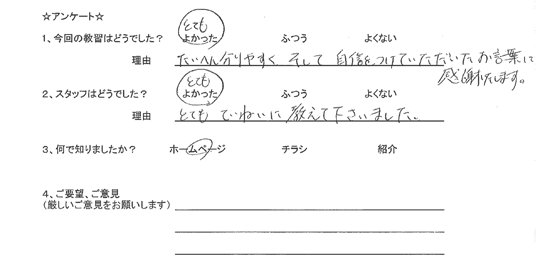 ☆アンケート☆
とても
1、今回の教習はどうでした? よかった ふつう よくない
理由 たいへん分りやすく、そして 自信をつけていただいた お言葉に
感謝致します。
とても
2、スタッフはどうでした? よかった ふつう よくない
理由 とても ていねいに 教えて下さいました。
3、何で知りましたか? ホームページ チラシ 紹介
4、ご要望、ご意見
(厳しいご意見をお願いします)